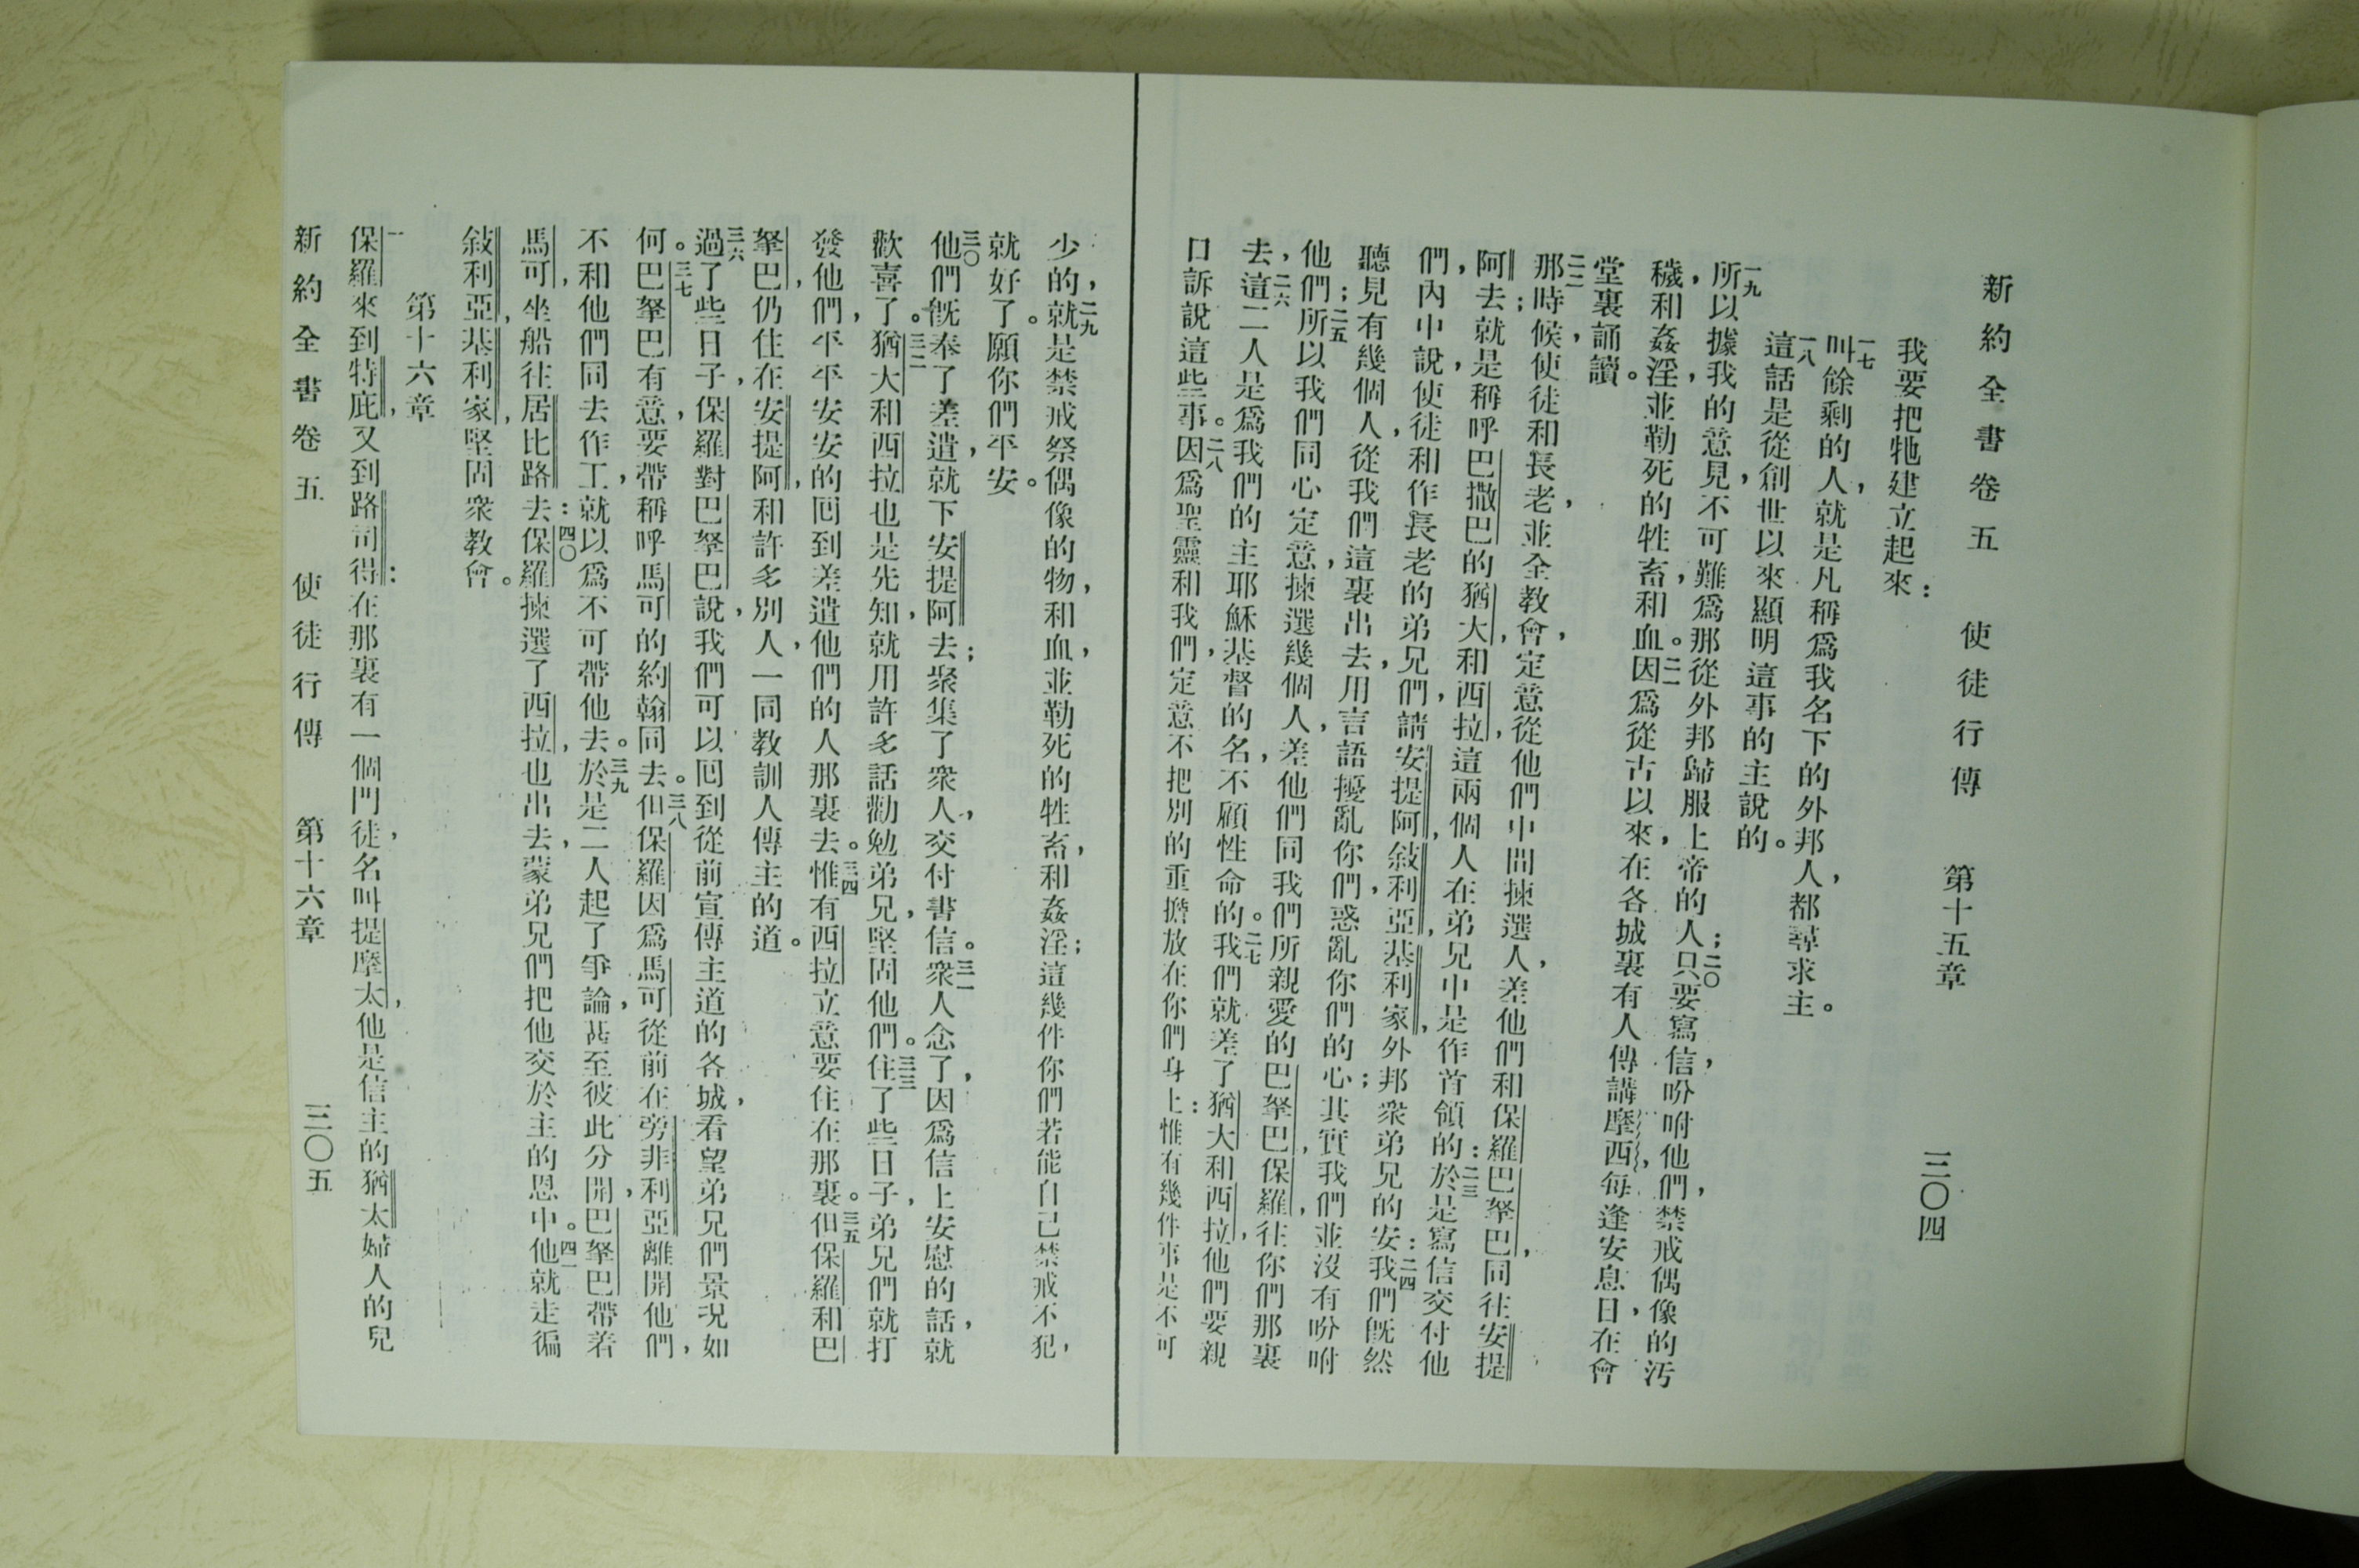 新約全書卷五 使徒行傳 第十五章 三〇四
我要把牠建立起來：
一七叫餘剩的人，就是凡稱爲我名下的外邦人，都尋求主。
一八這話是從創世以來顯明這事的主說的。
一九所以據我的意見，不可難爲那從外邦歸服上帝的人；二〇只要寫信，吩咐他們，禁戒偶像的汚
穢，和姦淫，並勒死的牲畜，和血。二一因爲從古以來，在各城裏有人傳講摩西，每逢安息日，在會
堂裏誦讀。
二二那時候，使徒和長老，並全教會，定意從他們中間揀選人，差他們和保羅巴拏巴，同往安提
阿去；就是稱呼巴撒巴的猶大，和西拉，這兩個人在弟兄中是作首領的：二三於是寫信交付他
們，內中說，使徒和作長老的弟兄們，請安提阿，敍利亞，基利家，外邦衆弟兄的安：二四我們旣然
聽見有幾個人，從我們這裏出去，用言語擾亂你們，惑亂你們的心；其實我們並沒有吩咐
他們；二五所以我們同心定意，揀選幾個人，差他們同我們所親愛的巴拏巴，保羅，往你們那裏
去，二六這二人是爲我們的主耶穌基督的名，不顧性命的。二七我們就差了猶大和西拉，他們要親
口訴說這些事。二八因爲聖靈和我們，定意不把別的重擔放在你們身上：惟有幾件事是不可
少的，二九就是禁戒祭偶像的物，和血，並勒死的牲畜，和姦淫；這幾件你們若能自己禁戒不犯，
就好了。願你們平安。
三〇他們旣奉了差遣，就下安提阿去；聚集了衆人，交付書信。三一衆人念了，因爲信上安慰的話，就
歡喜了。三二猶大和西拉也是先知，就用許多話勸勉弟兄，堅固他們。三三住了些日子，弟兄們就打
發他們，平平安安的回到差遣他們的人那裏去。三四惟有西拉立意要住在那裏。三五但保羅和巴
拏巴，仍住在安提阿，和許多別人，一同教訓人傳主的道。
三六過了些日子，保羅對巴拏巴說，我們可以回到從前宣傳主道的各城，看望弟兄們景况如
何。三七巴拏巴有意，要帶稱呼馬可的約翰同去。三八但保羅因爲馬可從前在旁非利亞離開他們，
不和他們同去作工，就以爲不可帶他去。三九於是二人起了爭論，甚至彼此分開，巴拏巴帶着
馬可，坐船往居比路去：四〇保羅揀選了西拉，也出去，蒙弟兄們把他交於主的恩中。四一他就走徧
敍利亞，基利家，堅固衆教會。
第十六章
一保羅來到特庇，又到路司得：在那裏有一個門徒，名叫提摩太，他是信主的猶太婦人的兒
新約全書卷五 使徒行傳 第十六章 三〇五